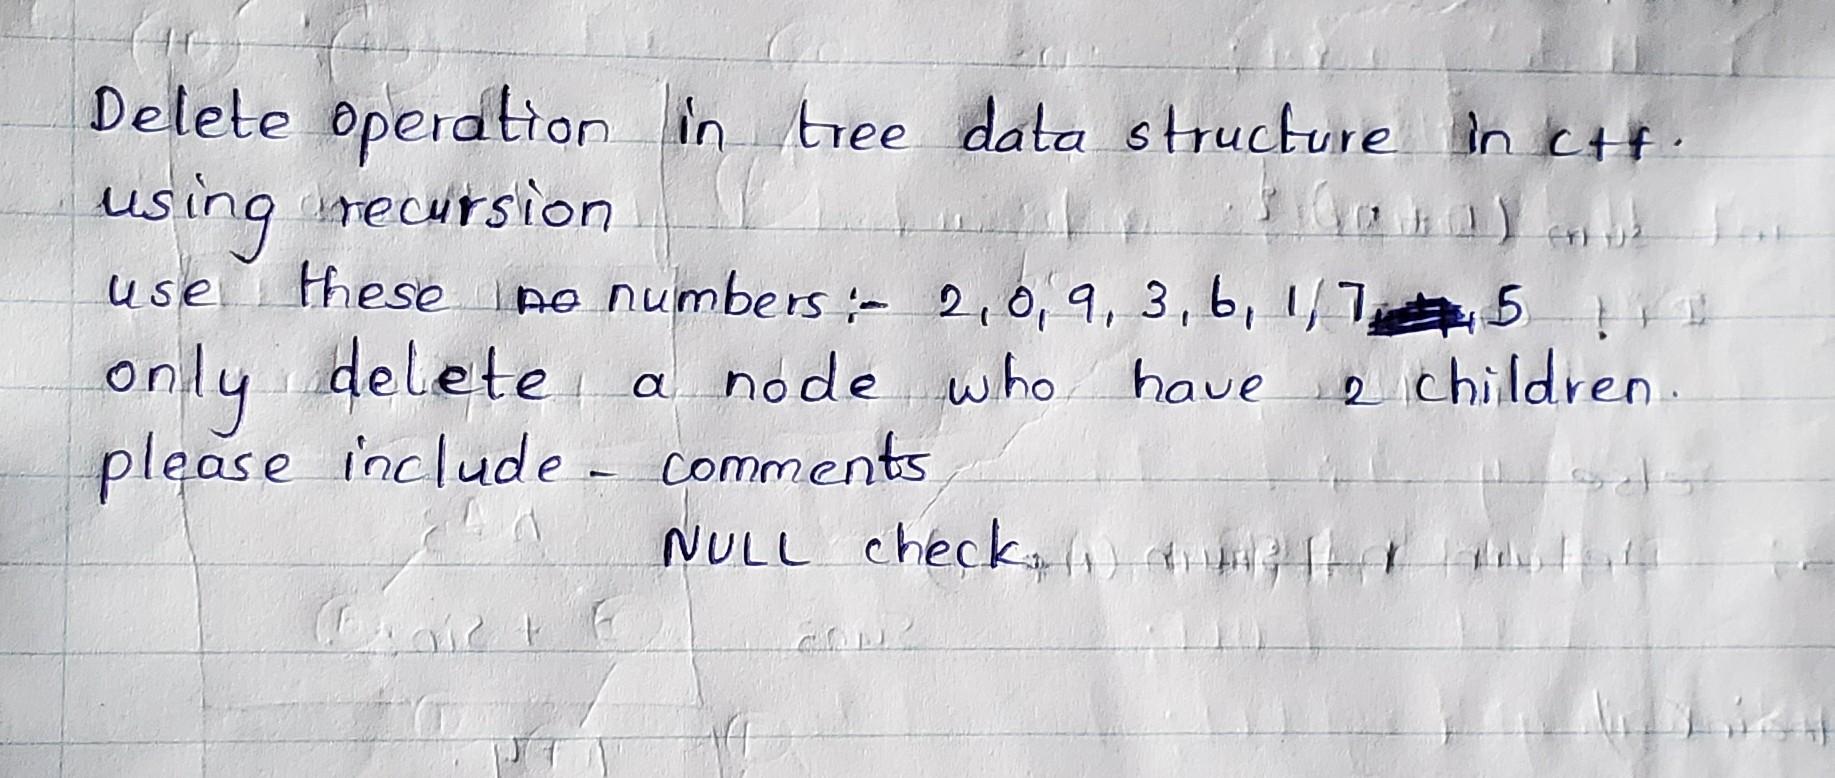 Delete operation in tree data structure in c++.
using recursion
use these numbers :- 2, 0, 9, 3, 6, 1, 7, 5
only delete a node who have 2 children.
please include - comments
NULL check.